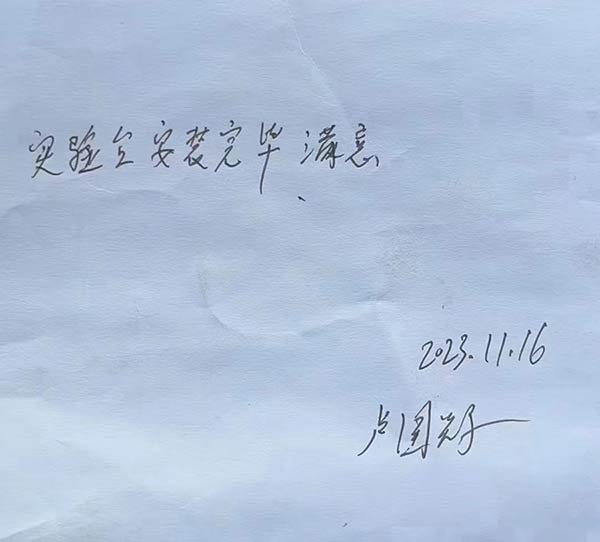 实验台安装完毕 满意
2023.11.16
卢国